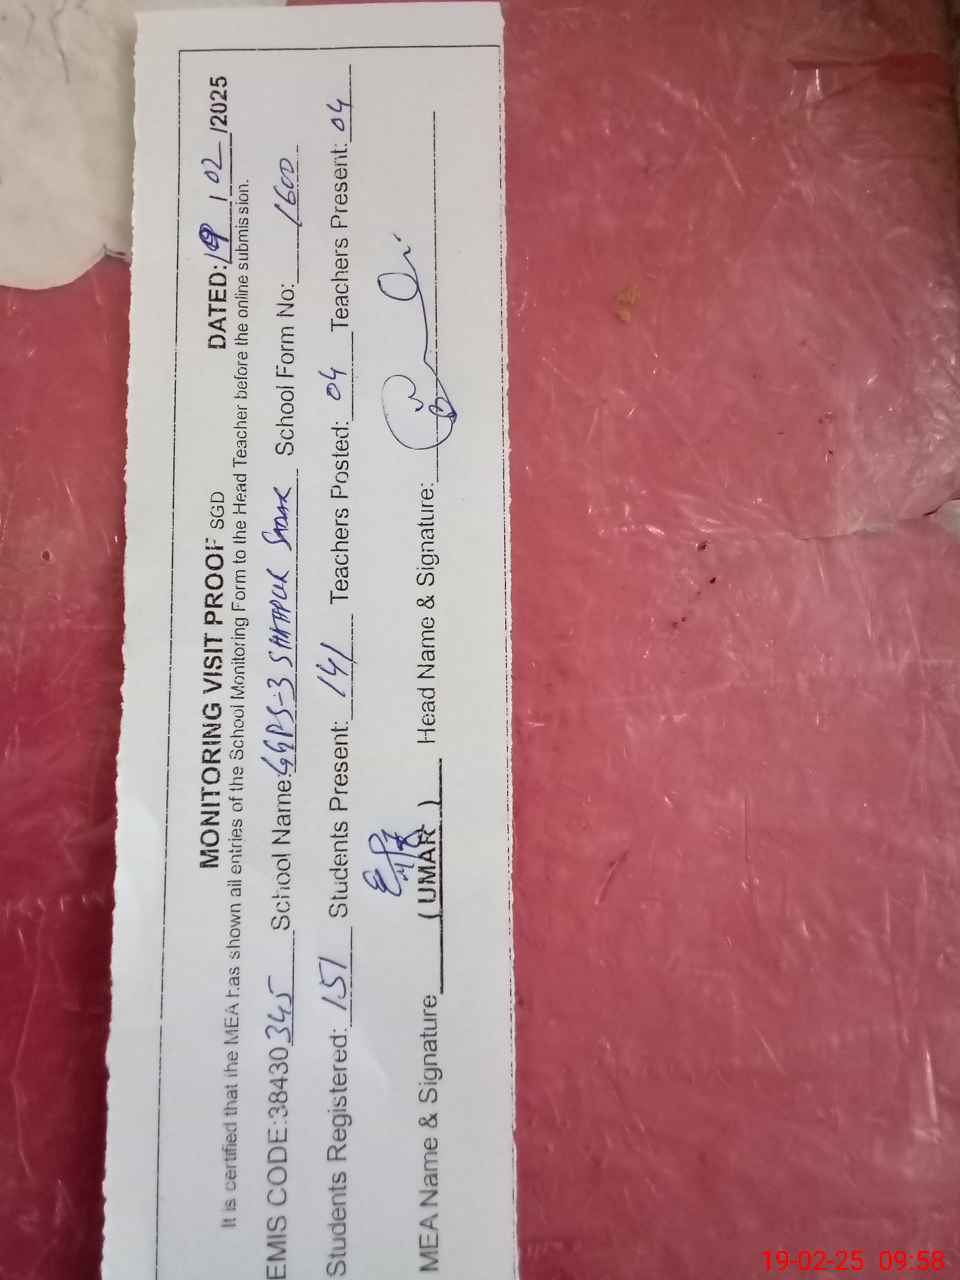 MONITORING VISIT PROOF SGD DATED: 19 / 02 /2025
It is certified that the MEA has shown all entries of the School Monitoring Form to the Head Teacher before the online submission.
EMIS CODE:38430345 School Name: GGPS-3 SHAHPUR SADAR School Form No: 1600
Students Registered: 151 Students Present: 141 Teachers Posted: 04 Teachers Present: 04
MEA Name & Signature ( UMAR ) Head Name & Signature:
19-02-25 09:58